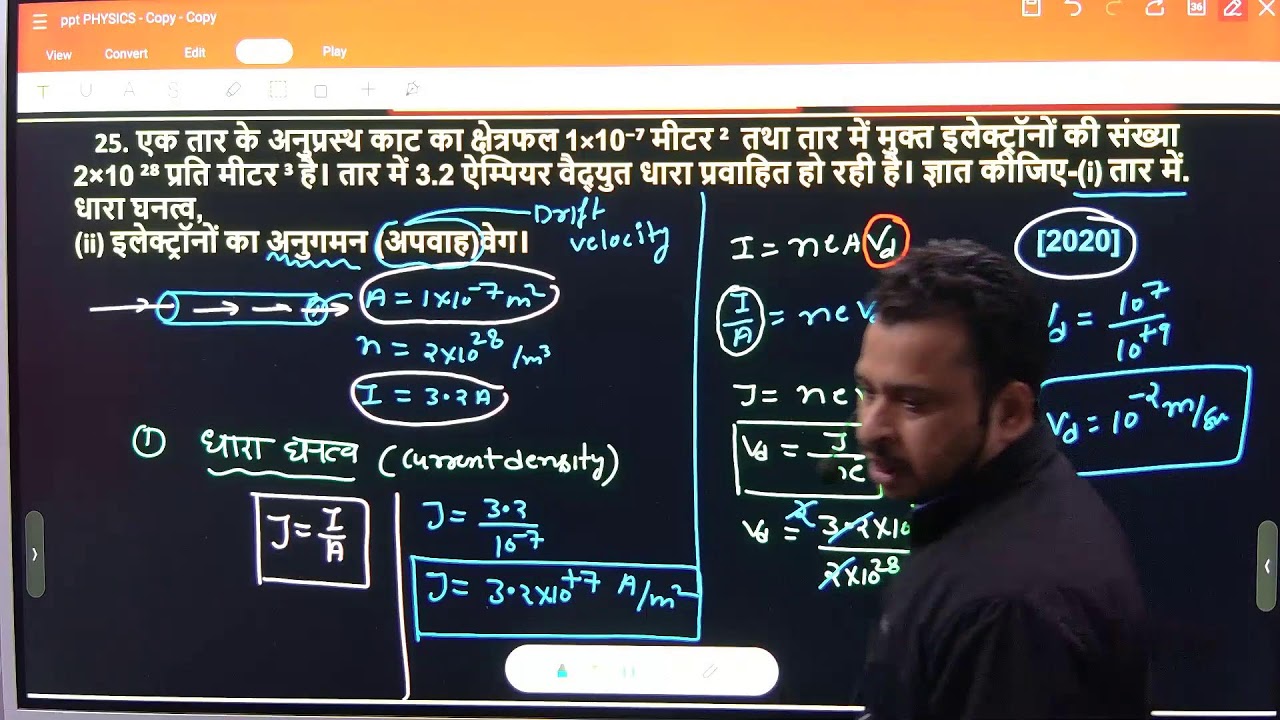 ppt PHYSICS - Copy - Copy
36
View Convert Edit Play
T U A S
25. एक तार के अनुप्रस्थ काट का क्षेत्रफल 1×10⁻⁷ मीटर ² तथा तार में मुक्त इलेक्ट्रॉनों की संख्या
2×10 ²⁸ प्रति मीटर ³ है। तार में 3.2 ऐम्पियर वैद्युत धारा प्रवाहित हो रही है। ज्ञात कीजिए-(i) तार में.
धारा घनत्व,
(ii) इलेक्ट्रॉनों का अनुगमन (अपवाह) वेग।
Drift
velocity
[2020]
A = 1×10⁻⁷ m²
n = 2×10²⁸ /m³
I = 3.2 A
① धारा घनत्व (current density)
J = I/A
J = 3.2/10⁻⁷
J = 3.2×10⁺⁷ A/m²
I = neA Vd
I/A = ne
J = ne
Vd = J/
Vd = 3.2×10
2×10²⁸
d = 10⁷/10⁺⁹
Vd = 10⁻² m/